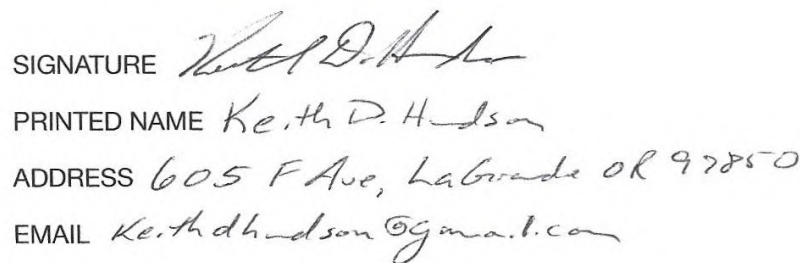 SIGNATURE Keith D. Hudson
PRINTED NAME Keith D. Hudson
ADDRESS 605 F Ave, La Grande OR 97850
EMAIL Keithdhudson@gmail.com